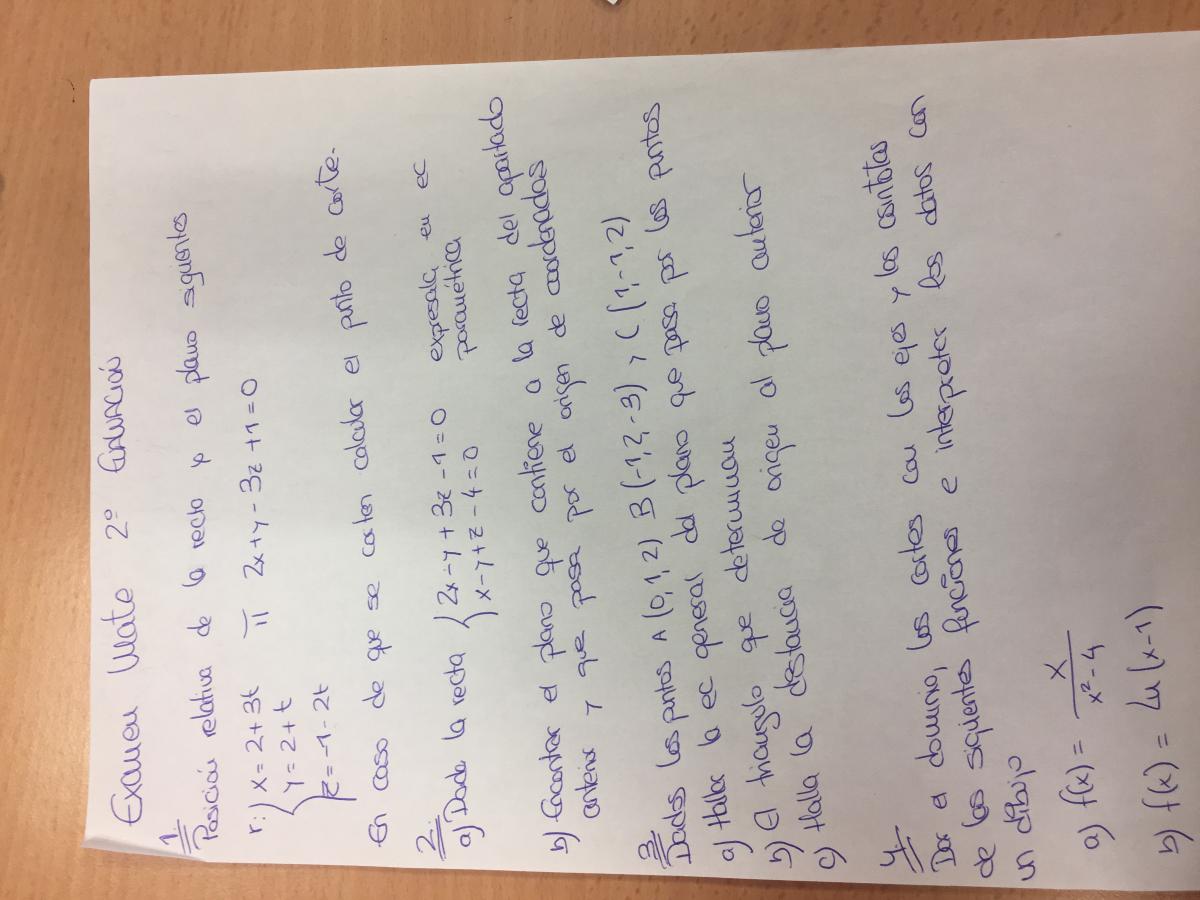 Examen Mate 2º Evaluación
1.
Posición relativa de la recta y el plano siguientes
r: { x = 2 + 3t π 2x + y - 3z + 1 = 0
y = 2 + t
z = -1 - 2t
En caso de que se corten calcular el punto de corte.
2.
a) Dada la recta { 2x - y + 3z - 1 = 0 expresala en ec
x - y + z - 4 = 0 paramétrica
b) Encontrar el plano que contiene a la recta del apartado
anterior y que pasa por el origen de coordenadas
3.
Dados los puntos A (0, 1, 2) B (-1, 2, -3) y C (1, -1, 2)
a) Hallar la ec general del plano que pasa por los puntos
b) El triangulo que determinan
c) Halla la distancia de origen al plano anterior
4.
Dar el dominio, los cortes con los ejes y las asintotas
de las siguientes funciones e interpreter los datos con
un dibujo
a) f(x) = x / x² - 4
b) f(x) = Ln (x - 1)